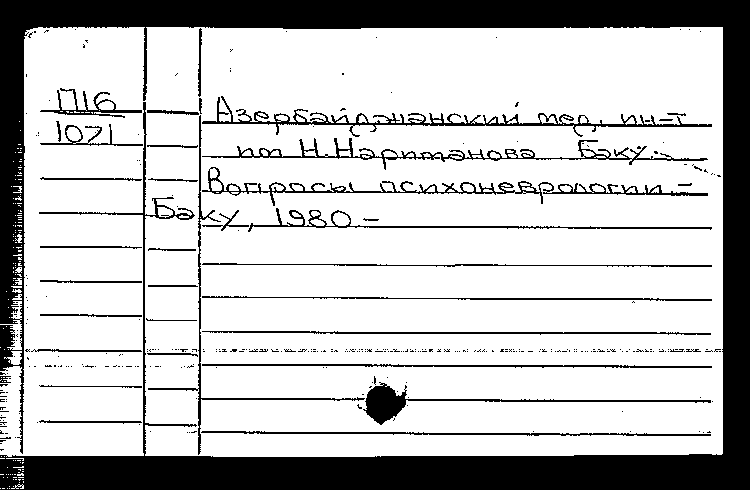 П16
1071
Азербайджанский мед. ин-т
им Н.Нариманова Баку.
Вопросы психоневрологии.-
Баку, 1980.-